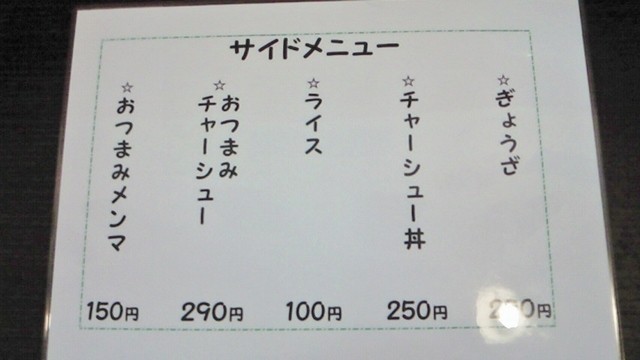 サイドメニュー
☆ぎょうざ
☆チャーシュー丼
250円
☆ライス
100円
☆おつまみ
チャーシュー
290円
☆おつまみメンマ
150円